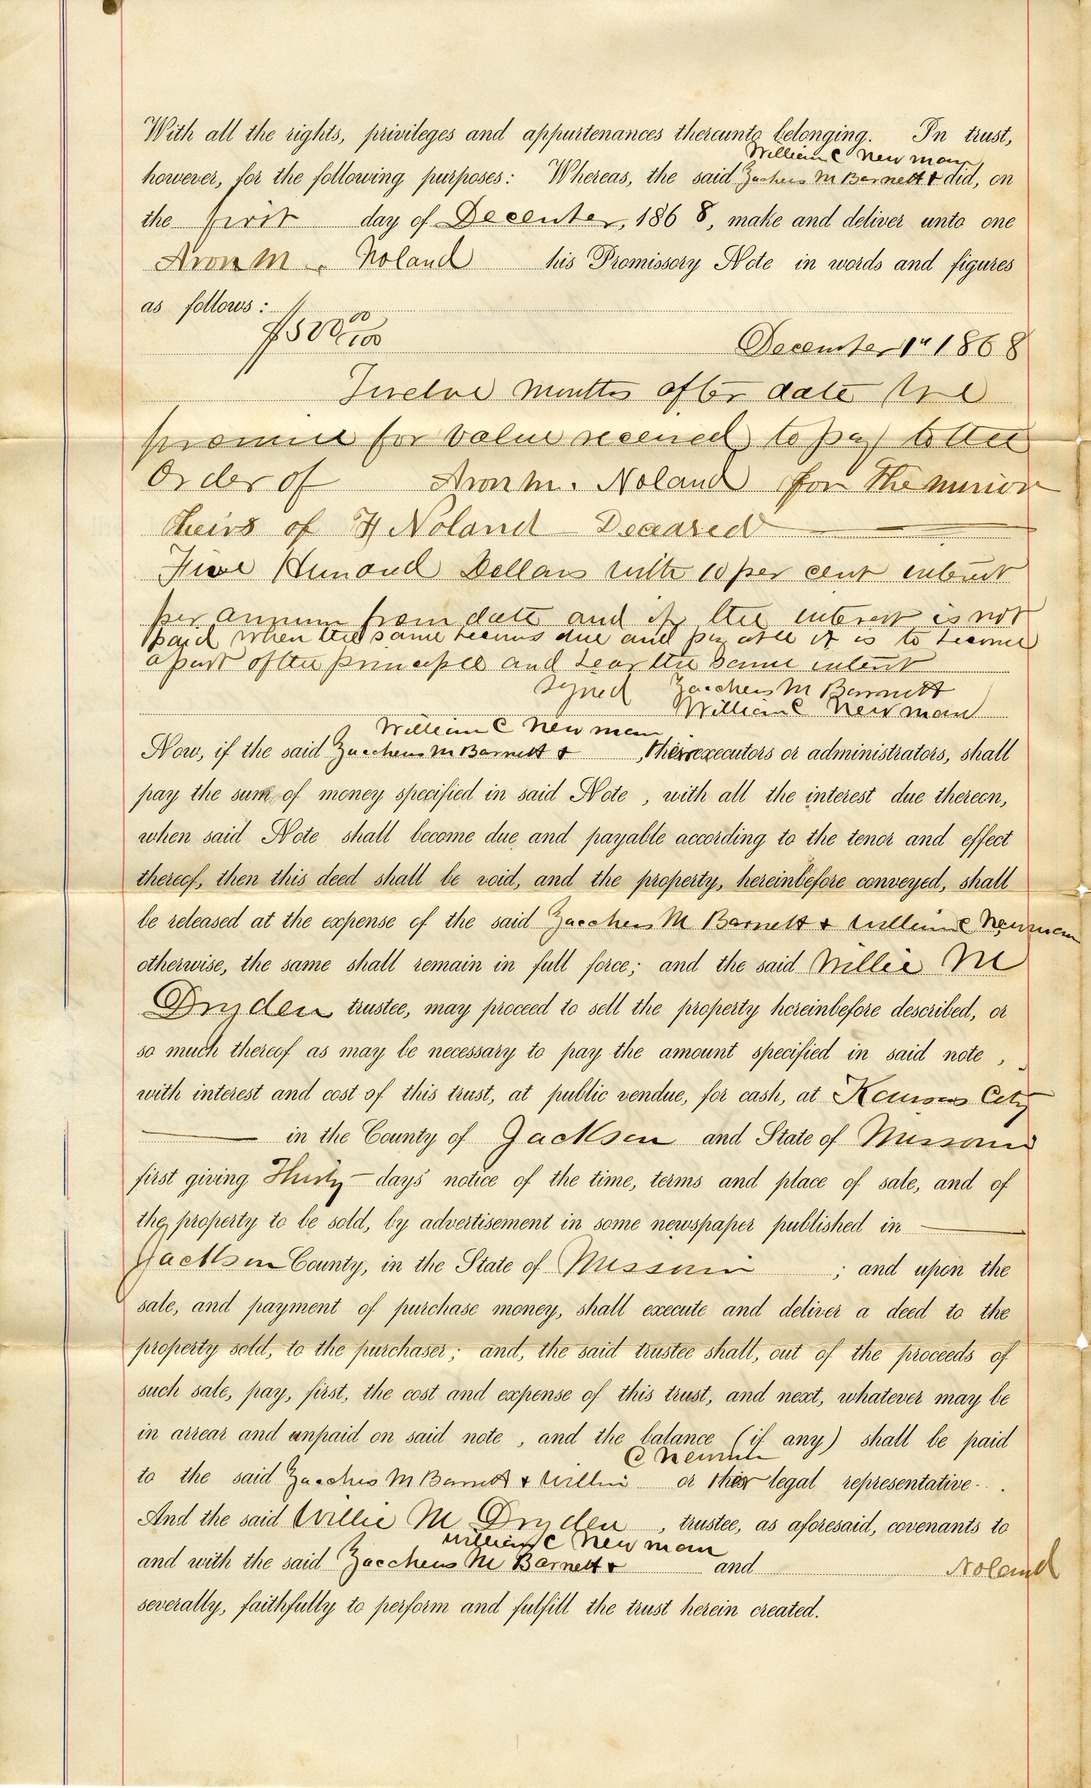 With all the rights, privileges and appurtenances thereunto belonging. In trust,
William C Newman
however, for the following purposes: Whereas, the said Zacheus M Barnett & did, on
the first day of December, 1868, make and deliver unto one
Aron M. Noland his Promissory Note in words and figures
as follows:
$500 00/100
December 1st 1868
Twelve months after date We
promise for value received to pay to the
Order of Aron M. Noland for the minor
heirs of Noland Deceased
Five Hundred Dollars with 10 per cent interest
per annum from date and if the interest is not
paid when the same becomes due and payable it is to become
a part of the principle and bear the same interest
signed Zaccheus M Barnett
William C Newman
William C Newman
Now, if the said Zaccheus M Barnett & , their executors or administrators, shall
pay the sum of money specified in said Note , with all the interest due thereon,
when said Note shall become due and payable according to the tenor and effect
thereof, then this deed shall be void, and the property, hereinbefore conveyed, shall
be released at the expense of the said Zaccheus M Barnett & William C Newman
otherwise, the same shall remain in full force; and the said Willie M
Dryden trustee, may proceed to sell the property hereinbefore described, or
so much thereof as may be necessary to pay the amount specified in said note ,
with interest and cost of this trust, at public vendue, for cash, at Kansas City
in the County of Jackson and State of Missouri
first giving Thirty days' notice of the time, terms and place of sale, and of
the property to be sold, by advertisement in some newspaper published in
Jackson County, in the State of Missouri ; and upon the
sale, and payment of purchase money, shall execute and deliver a deed to the
property sold, to the purchaser; and, the said trustee shall, out of the proceeds of
such sale, pay, first, the cost and expense of this trust, and next, whatever may be
in arrear and unpaid on said note , and the balance (if any) shall be paid
C Newman
to the said Zacchus M Barnett & Willim or their legal representative .
And the said Willie M Dryden , trustee, as aforesaid, covenants to
William C Newman
and with the said Zaccheus M Barnett & and Noland
severally, faithfully to perform and fulfill the trust herein created.